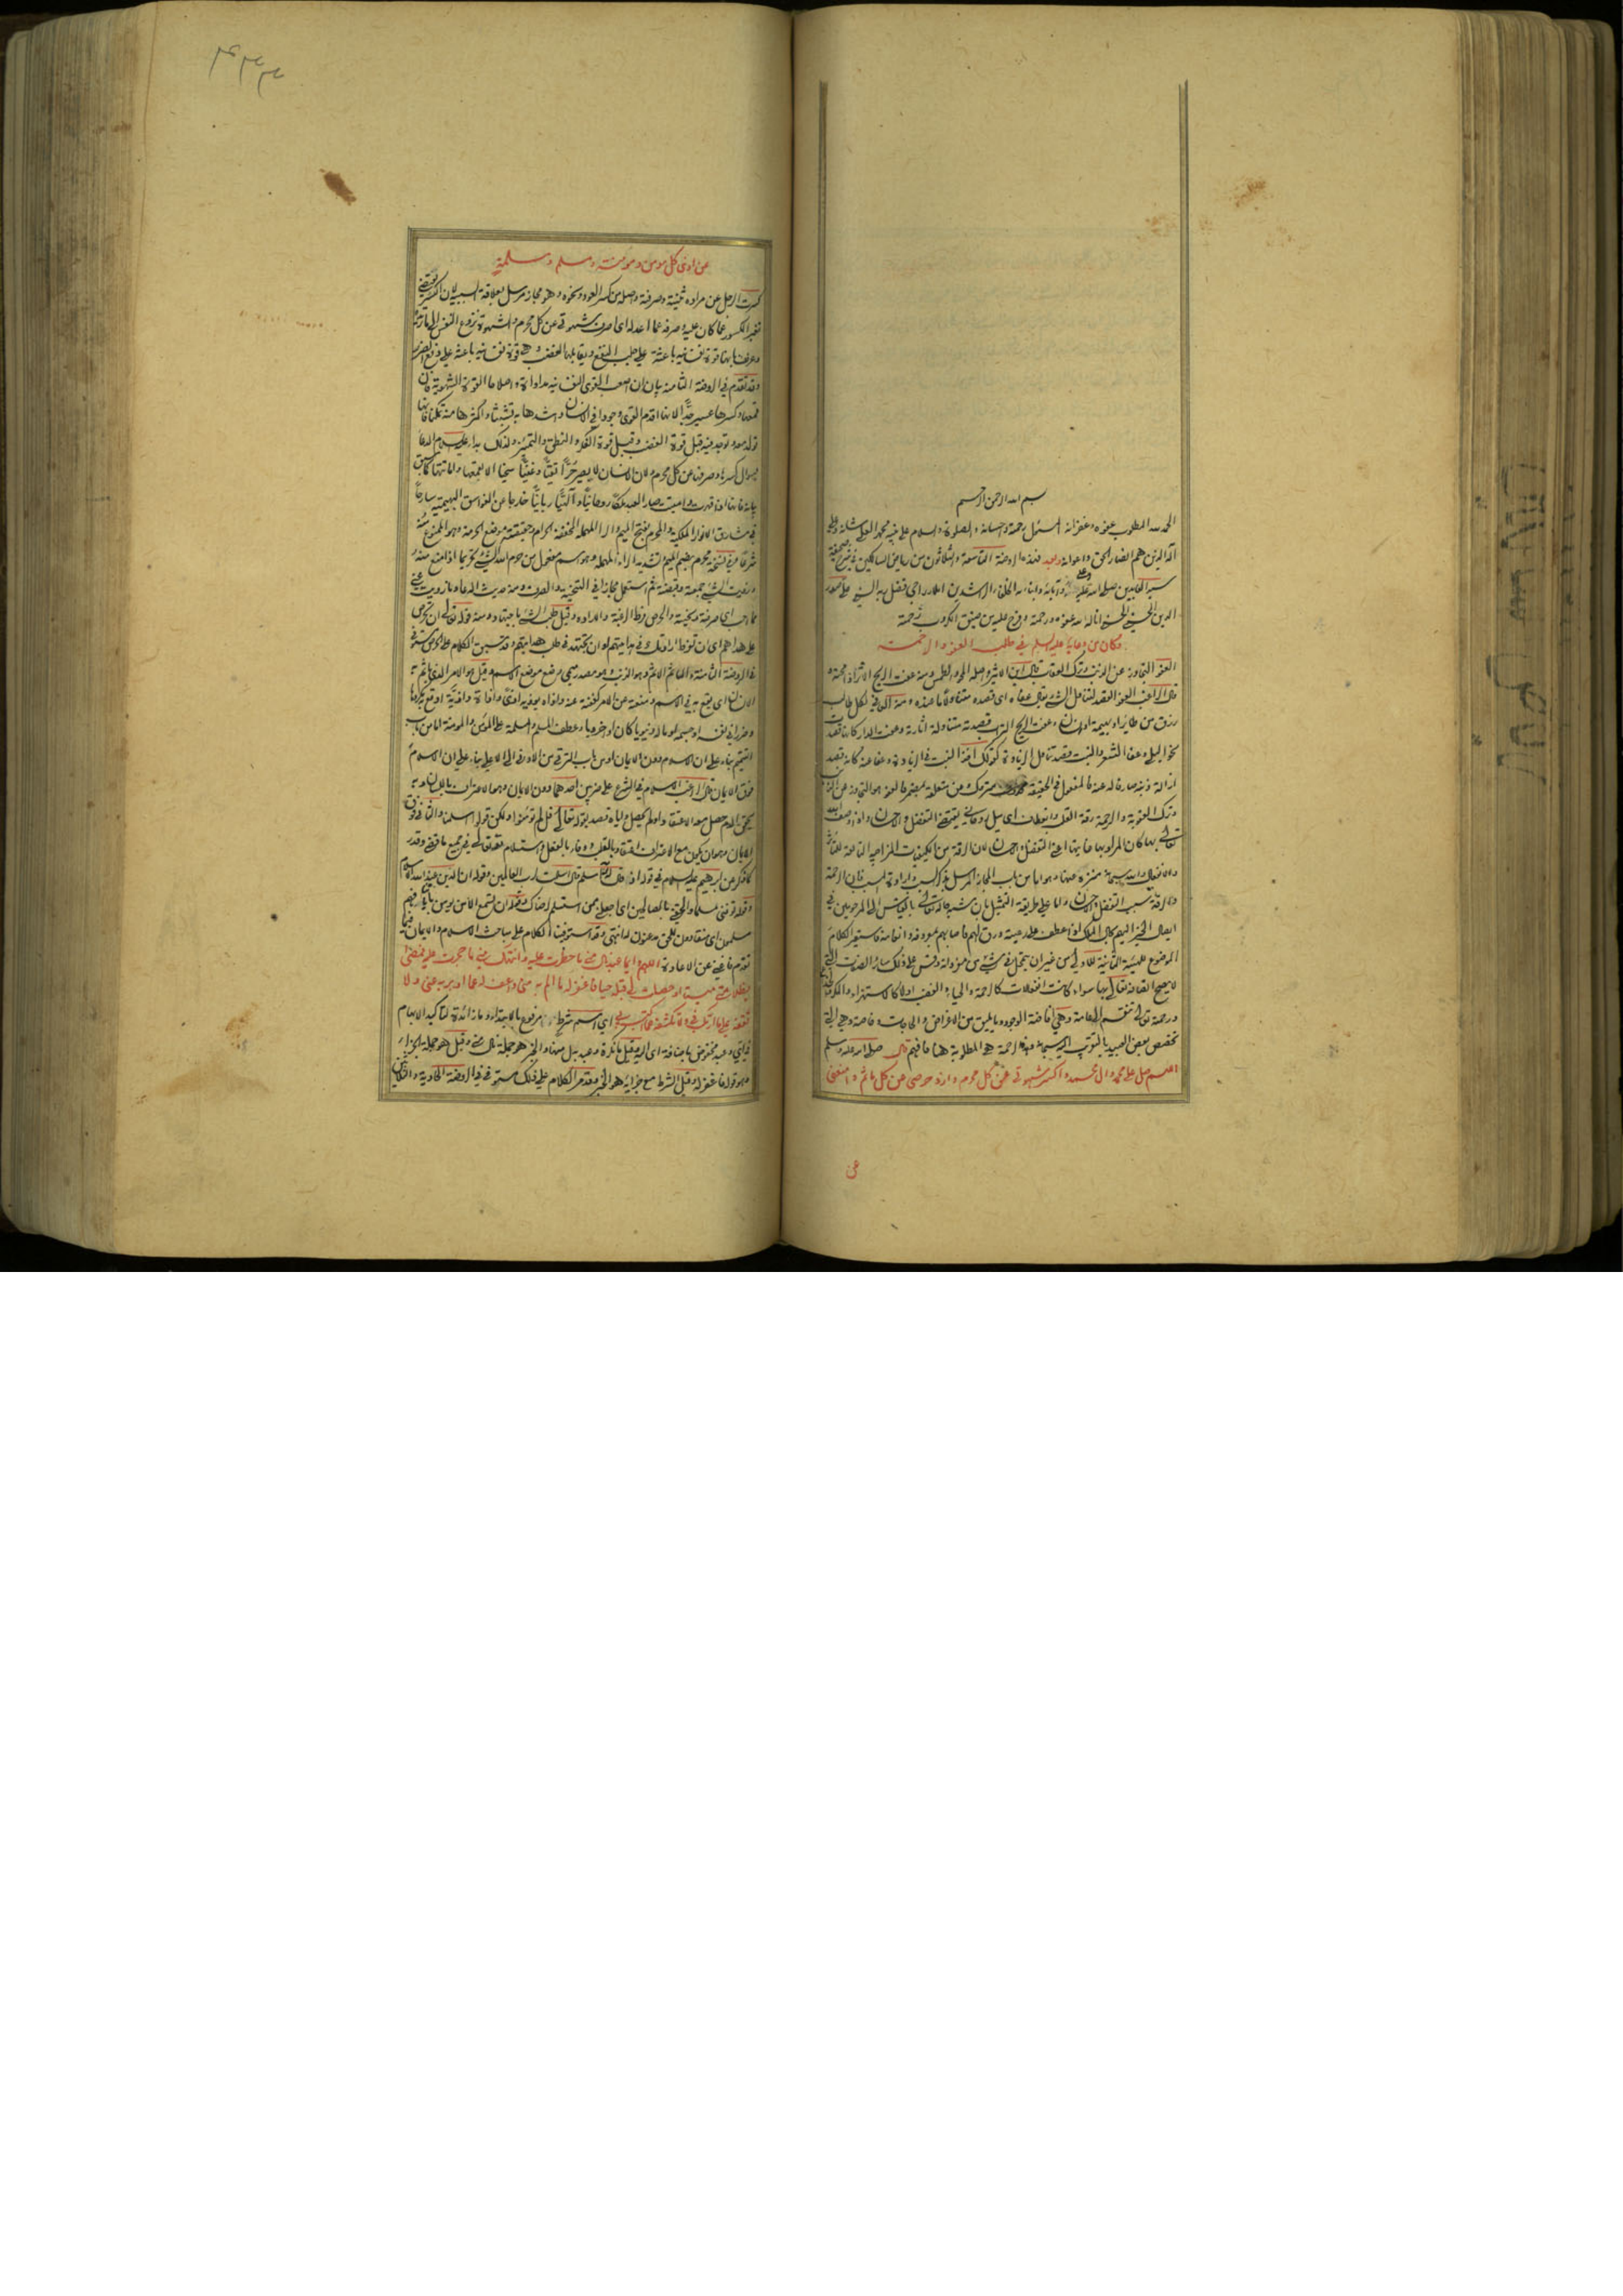 بسم الله الرحمن الرحيم
الحمد لله المطلوب عفوه وغفرانه المسئول رحمته واحسانه والصلوة والسلام على نبيه محمد العلي شانه وعلى
اله الذين هم انصار الحق واعوانه وبعد فهذه الروضة التاسعة والثلاثون من رياض السالكين في شرح صحيفة
سيد العابدين صلوات الله عليه وعلى ابائه وابنائه الخلفاء الراشدين املاء راجي فضل ربه السني علي صدر
الدين الحسيني الحسني اناله الله عفوه ورحمته وفرج عليه من ضيق الكرب
وكان من دعائه عليه السلم في طلب العفو والرحمة
العفو التجاوز عن الذنب وترك العقاب قال ابن الاثير واصله المحو والطمس ومنه عفت الريح الاثر اذا محته و
قال الراغب العفو القصد لتناول الشيء يقال عفاه اي قصده متناولا ما عنده ومنه العافي لكل طالب
رزق من طاير او بهيمة او انسان وعفت الريح التراب قصدته متناولة اثاره وعفت الدار كانها قصدت
نحو البلى وعفا الشعر والنبت قصد تناول الزيادة كقولك اخذ النبت في الزيادة وعفا عنه كانه قصد
ازالة ذنبه صارفا له عنه فالمفعول في الحقيقة متروك وعن متعلقة بمضمر فالعفو هو التجاوز عن الذنب
وترك العقوبة والرحمة رقة القلب وانعطاف اي ميل روحاني يقتضي التفضل والاحسان واذا وصف الله
تعالى بها كان المراد بها غايتها اعني التفضل والاحسان لان الرقة من الكيفيات المزاجية التابعة للتاثر
والانفعال والله سبحانه منزه عنها وهو اما من باب المجاز المرسل بذكر السبب وارادة المسبب فان الرحمة
والرقة سبب التفضل والاحسان واما على طريقة التمثيل بان شبه حاله تعالى بالقياس الى المرحومين في
ايصال الخير اليهم بحال الملك اذا عطف على رعيته ورق لهم فاصابهم بمعروفه وانعامه فاستعير الكلام
الموضوع للهيئة الثانية للاولى من غير ان يتمحل في شيء من مفرداته وقس على ذلك سائر الصفات التي
لا يصح اتصافه تعالى بها سواء كانت انفعالات كالرحمة والحياء والغضب اولا كالاستهزاء والمكر والخداع
ورحمته تعالى تنقسم الى عامة وهي افاضة الوجود وما يليق من الاغراض والحاجات وخاصة وهي التي
تختص بعض العبيد بالتقرب اليه سبحانه وهذه الرحمة هي المطلوبة هنا فافهم قال صلوات الله عليه وسلم
اللهم صل على محمد وال محمد واكسر شهوتي عن كل محرم وازو حرصي عن كل ماثم وامنعني
عن
٤٣٣
عن اذى كل مومن ومومنة ومسلم ومسلمة
كسرت الرجل عن مراده ثنيته وصرفته واصله من كسر العود ونحوه وهو مجاز مرسل بعلاقة السببية لان الكسر يقتضي
تغير المكسور عما كان عليه وصرفه عما اعد له اي اصرف شهوتي عن كل محرم والشهوة نزوع النفس الى ما تريده
وعرفت بانها قوة نفسانية باعثة على جلب النفع ويقابلها الغضب وهي قوة نفسانية باعثة على دفع الضرر
وقد تقدم في الروضة الثامنة بيان ان اصعب القوى النفسانية مداواة واصلاحا القوة الشهوية فان
قمعها وكسرها عسير جدا لانها اقدم القوى وجودا في الانسان واشدها به تشبثا واكثرها منه تمكنا فانها
تولد معه وتوجد فيه قبل قوة الغضب وقبل قوة الفكر والنطق والتمييز ولذلك بدا عليه السلام الدعا
بسؤال كسرها وصرفها عن كل محرم لان الانسان لا يصير حرا نقيا وغنيا سخيا الا بقمعها واماتتها كما سبق
بيانه فانها اذا قهرت واميتت صار العبد ملكا روحانيا والهيا ربانيا خارجا عن الغواسق البهيمية سارحا
في مشارق الانوار الملكية والمحرم بفتح الميم والراء المهملة المخففة الحرام وحقيقته موضع الحرمة وهو الممنوع منه
شرعا وفي نسخة محرم بضم الميم وتشديد الراء المهملة وهو اسم مفعول من حرم الله الشيء تحريما اذا منع منه
وزويت الشيء جمعته وقبضته ثم استعمل مجازا في التنحية والصرف ومنه حديث الدعاء وما زويت عني
مما احب اي صرفته ونحيته والحرص فرط الرغبة والارادة وقيل طلب الشيء باجتهاد ومنه قوله تعالى ان تحرص
على هداهم اي ان تفرط ارادتك في هدايتهم او ان تجتهد في طلب هدايتهم وقد سبق الكلام على الحرص مستوفى
في الروضة الثامنة والماثم الاثم وهو الذنب وهو مصدر ميمي وضع موضع الاسم وقيل هو الامر الذي ياثم به
الانسان اي يقع به في الاثم ومنعته عن الامر كففته عنه واذاه يوذيه اذى واذاة واذية اوقع به مكروها
وضررا في نفسه او جسمه او ماله دنيويا كان او اخرويا وعطف المسلم والمسلمة على المومن والمومنة اما من باب
التتميم بناء على ان الاسلام دون الايمان او من باب الترقي من الادنى الى الاعلى بناء على ان الاسلام
فوق الايمان قال الراغب الاسلام في الشرع على ضربين احدهما دون الايمان وهو الاعتراف باللسان وبه
يحقن الدم حصل معه الاعتقاد او لم يحصل واياه قصد بقوله تعالى قل لم تومنوا ولكن قولوا اسلمنا والثاني فوق
الايمان وهو ان يكون مع الاعتراف اعتقاد بالقلب ووفاء بالفعل واستسلام لله تعالى في جميع ما قضى وقدر
كما ذكر عن ابرهيم عليه السلام في قوله اذ قال له ربه اسلم قال اسلمت لرب العالمين وقوله ان الدين عند الله الاسلام
وقوله توفني مسلما والحقني بالصالحين اي اجعلني ممن استسلم لرضاك وقوله ان تسمع الا من يومن باياتنا فهم
مسلمون اي منقادون للحق مذعنون له انتهى وقد استوفينا الكلام على مباحث الاسلام والايمان فيما
تقدم فاغنى عن الاعادة اللهم وايما عبد نال مني ما حظرت عليه وانتهك مني ما حجرت عليه فمضى
بظلامتي ميتا او حصلت لي قبله حيا فاغفر له ما الم به مني واعف له عما ادبر به عني ولا
تقفه على ما ارتكب في ولا تكشفه عما اكتسب بي اي اسم شرط مرفوع بالابتداء وما زائدة لتاكيد الابهام
في اي وعبد مخفوض باضافة اي اليه وقيل ما نكرة وعبد بدل منها والخبر هو جملة نال مني وقيل هو جملة الجزاء
وهو قوله فاغفر له وقيل الشرط مع جزائه هو الخبر وقد مر الكلام على ذلك مستوفى في الروضة الحادية والثلاثين